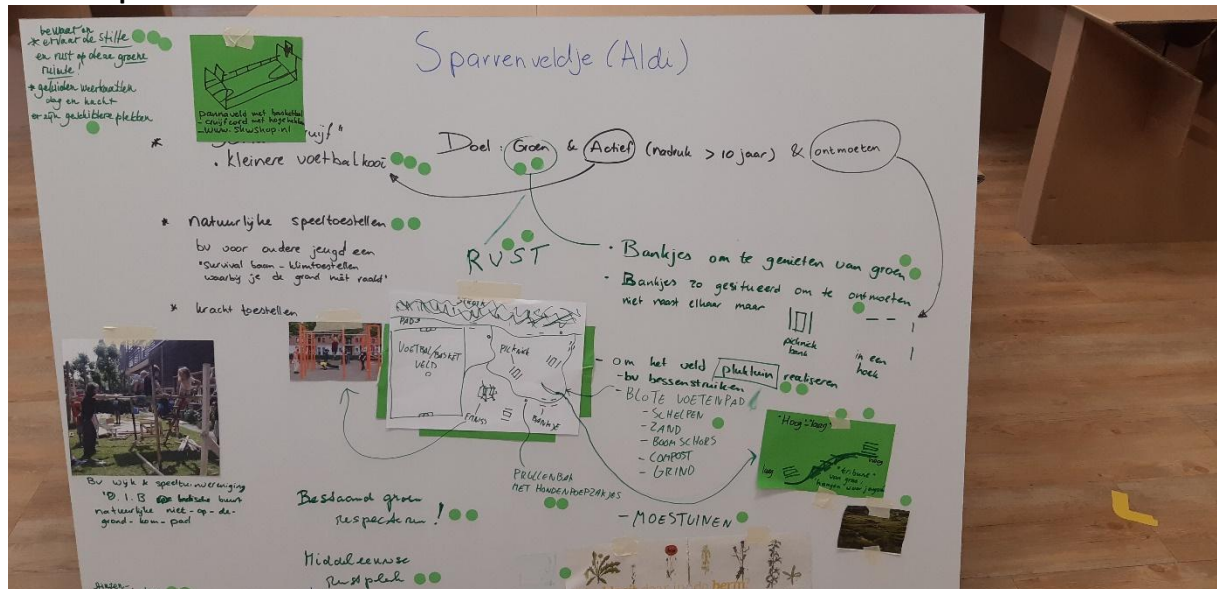 Sparrenveldje (Aldi)
bewaar en
* ervaar de stilte
en rust op deze groene
ruimte!
* geluiden weerkaatsen
dag en nacht
er zijn geschiktere plekken
pannaveld met basketbal
- cruijfcord met hoge hekken
- www.skwshop.nl
*
. kleinere voetbalkooi
Doel: Groen & Actief (nadruk > 10 jaar) & ontmoeten
* natuurlijke speeltoestellen
bv voor oudere jeugd een
"survival baan - klimtoestellen
waarbij je de grond niet raakt"
* kracht toestellen
RUST
- Bankjes om te genieten van groen
- Bankjes zo gesitueerd om te ontmoeten
niet naast elkaar maar
picknick
bank
in een
hoek
PAD
VOETBAL/BASKET
VELD
PICKNICK
FITNESS
BANKJE
- om het veld pluktuin realiseren
- bv bessenstruiken
- BLOTE VOETENPAD
- SCHELPEN
- ZAND
- BOOMSCHORS
- COMPOST
- GRIND
- MOESTUINEN
"Hoog"-"laag"
hoog
laag
"tribune"
van gras
"hangen" voor jongeren
PRULLENBAK
MET HONDENPOEPZAKJES
Bv wijk & speeltuinvereniging
natuurlijke niet-op-de-
grond-kom-pad
Bestaand groen
respecteren!
Middeleeuwse
Rustplek